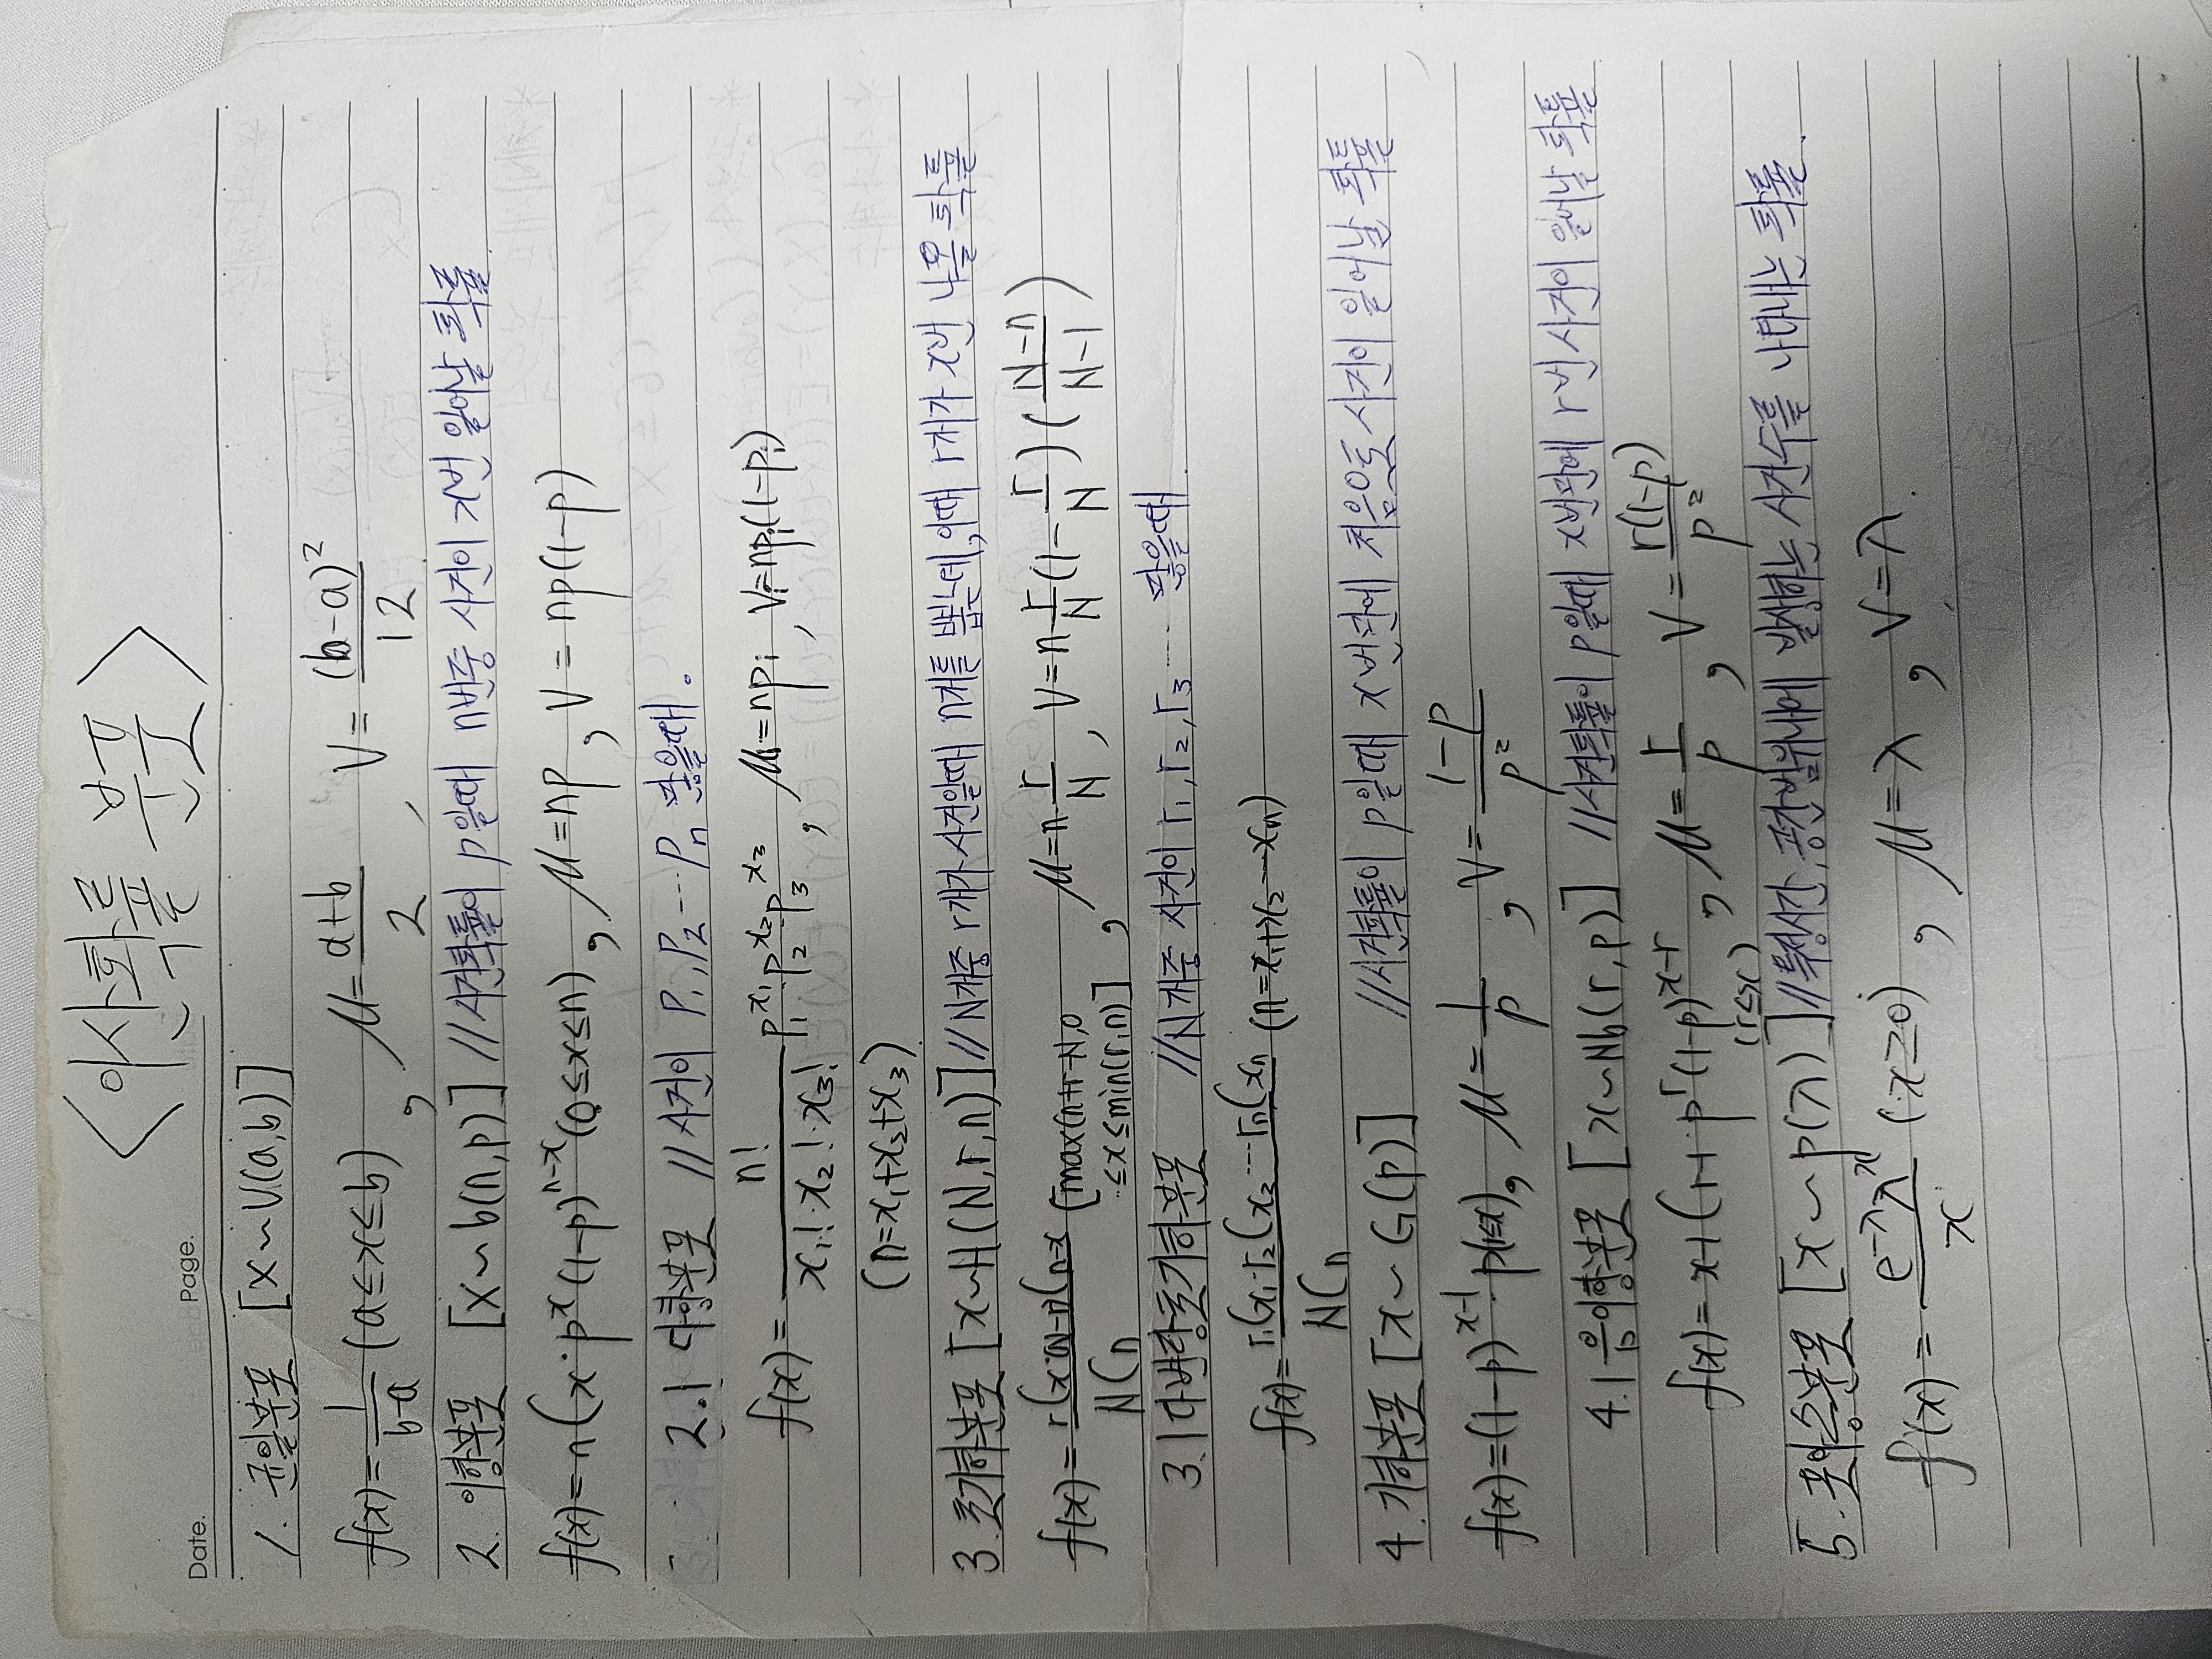 Date. Page.
<이산확률 분포>
1. 균일분포 [X~U(a,b)]
f(x)=1/(b-a) (a≤x≤b), μ=(a+b)/2, V=(b-a)²/12
2. 이항분포 [X~b(n,p)] //사건확률이 p일때 n번중 사건이 x번 일어날 확률
f(x)=nCx·p^x(1-p)^(n-x) (0≤x≤n), μ=np, V=np(1-p)
2.1 다항분포 //사건이 P₁,P₂…Pn 많을때.
f(x)=n!/(x₁!·x₂!·x₃!) p₁^x₁ p₂^x₂ p₃^x₃, μi=npi, Vi=npi(1-pi)
(n=x₁+x₂+x₃)
3. 초기하분포 [x~H(N,r,n)] //N개중 r개가 사건일때 n개를 뽑는데, 이때 r개가 x번 나올 확률
f(x)=rCx·(N-r)C(n-x)/NCn [max(n+r-N,0) ≤x≤min(r,n)], μ=n r/N, V=n r/N(1-r/N)((N-n)/(N-1))
3.1 다변량초기하분포 //N개중 사건이 r₁,r₂,r₃ … 많을때
f(x)=r₁Cx₁·r₂Cx₂…rnCxn/NCn (n=x₁+x₂…xn)
4. 기하분포 [x~G(p)] //사건확률이 p일때 x번만에 처음으로 사건이 일어날 확률
f(x)=(1-p)^(x-1)·p(1≤x), μ=1/p, V=(1-p)/p²
4.1 음이항분포 [x~Nb(r,p)] //사건확률이 p일때 x번만에 r번 사건이 일어날 확률
f(x)=x-1Cr-1·p^r(1-p)^(x-r) (r≤x), μ=r/p, V=r(1-p)/p²
5. 포아송분포 [x~p(λ)] //특정시간, 공간범위내에 발생하는 사건수를 나타내는 확률.
f(x)=e^(-λ)λ^x/x (x≥0), μ=λ, V=λ.